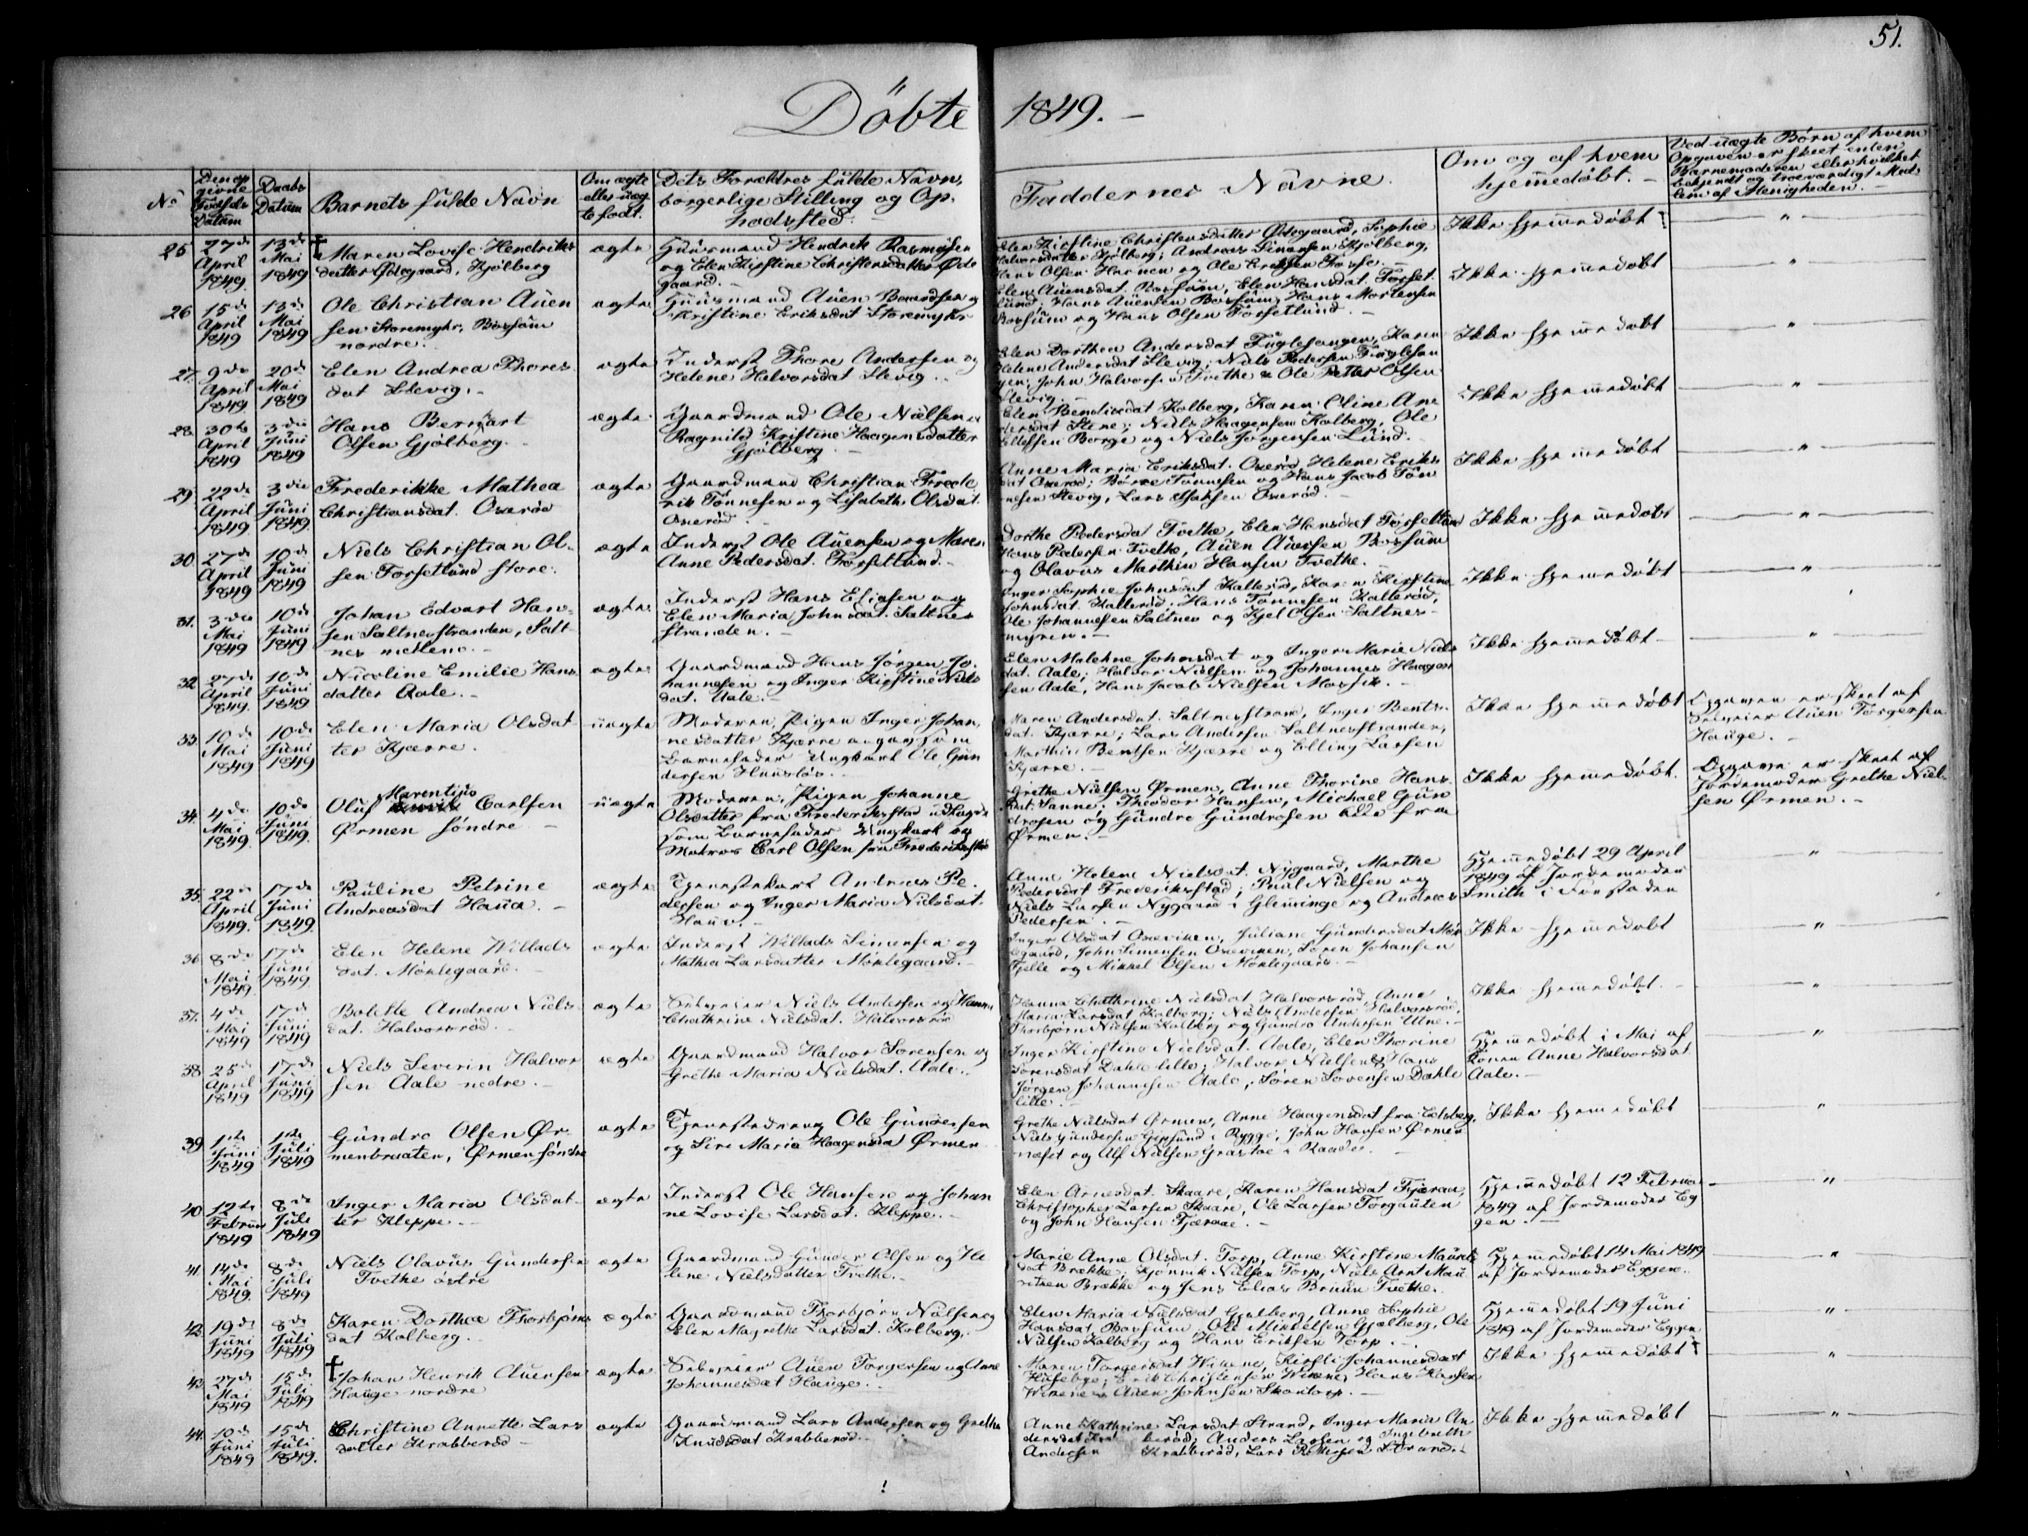 51.
Döbte 1849. –
No
Den op
givne
Fødsels
Datum
Daabs
Datum
Barnets fulde Navn
Om ægte
eller uæg
te født.
Dets Forældres fulde Navn,
borgerlige Stilling og Op-
holdssted
Faddernes Navne.
Om og af hvem
hjemmedøbt. –
Ved uægte Børn af hvem
Opgaven er skeet enten
Barnemoderen eller hvilket
bekjendt og troværdigt Med-
lem af Menigheden. –
25
27de
April
1849
13de
Mai
1849
† Maren Lovise Hendriks
datter Ødegaard, Kjølberg
ægte
Huusmand Hendrik Rasmusen
og Elen Kirstine Christensdatter Øde
gaard. –
Elen Kirstine Christensdatter Ødegaard, Sophie
Halvorsdatter Kjølberg; Andreas Simensen Kjølberg,
Hans Olsen Harnen og Ole Erichsen Torse. –
Ikke hjemmedøbt
"
26
15de
April
1849
13de
Mai
1849
Ole Christian Auen
sen Storemyhr, Bossum
nordre.
ægte
Huusmand Auen Baardsen og
Kristine Eriksdat Storemyhr
Elen Auensdat. Bossum, Elen Hansdat. Torset
lund; Hans Auensen Bossum, Hans Mortensen
Bossum og Hans Olsen Forsetlund. –
Ikke hjemmedøbt
"
27.
9de
April
1849
20de
Mai
1849
Elen Andrea Thores
dat Slevig. –
ægte
Inderst Thore Andersen og
Helene Halvorsdat Slevig. –
Elen Dorthea Andersdat Fuglesangen, Karen
Helene Andersdat Slevig; Niels Pedersen Fuglesan
gen, John Halvorsen Tvethe & Ole Petter Olsen
Slevig. –
Ikke hjemmedøbt
"
28.
30te
April
1849
3die
Juni
1849
Hans Bernart
Olsen Gjølberg. –
ægte
Gaardmand Ole Nielsen &
Ragnild Kristine Haagensdatter
Gjølberg –
Elen Bendixsdat Kolberg, Karen Oline An
dersdat Stene; Niels Haagensen Kolberg, Ole
Ellefsen Borge og Niels Jørgensen Lund. –
Ikke hjemmedøbt
"
29
22de
April
1849
3die
Juni
1849
Frederikke Mathea
Christiansdat. Oxerød
ægte
Gaardmand Christian Frede
rik Tønnesen og Lisabeth Olsdat.
Oxerød. –
Anne Maria Eriksdat. Oxerød, Helene Eriks
dat Oxerød; Børre Tønnesen og Hans Jacob Tøn
nesen Slevig, Lars Isaksen Oxerød. –
Ikke hjemmedøbt
"
30.
27de
April
1849
10de
Juni
1849
Niels Christian Ol-
sen Forsetlund store.
ægte
Inderst Ole Auensen og Maren
Anne Pedersdat. Forsetlund. –
Dorthe Pedersdat Tvethe, Elen Hansdat Forsetlund
Hans Pedersen Tvethe, Auen Auensen Bossum
og Olavus Marthin Hansen Tvethe.
Ikke hjemmedøbt
"
31.
3die
Mai
1849
10de
Juni
1849
Johan Edvart Han-
sen Saltnesstranden, Salt-
nes mellem. –
ægte
Inderst Hans Eliasen og
Elen Maria Johnsdat. Saltnes
stranden. –
Inger Sophie Johnsdat Kallerød, Karen Kirstine
Johnsdat. Kallerød; Hans Tønnesen Kallerød,
Ole Johannesen Saltnes og Kjel Olsen Saltnes
myren. –
Ikke hjemmedøbt
"
32
27de
April
1849.
10de
Juni
1849
Nicoline Emilie Hans
datter Aale. –
ægte
Gaardmand Hans Jørgen Jo-
hannesen og Inger Kirstine Niels
dat. Aale. –
Elen Malehne Johnsdat og Inger Marie Niels
dat. Aale; Halvor Nielsen og Johannes Haagen
sen Aale, Hans Jacob Nielsen Mossik. –
Ikke hjemmedøbt –
"
33.
10de
Mai
1849
10de
Juni
1849
Elen Maria Olsdat
ter Kjærre.
uægte
Moderen, Pigen Inger Johan
nesdatter Kjærre angav som
Barnefader Ungkarl Ole Gun
dersen Huusløs. –
Maren Andersdat. Saltnesstrand, Inger Bents
dat. Kjærre; Lars Andersen Saltnesstranden,
Marthin Bentsen Kjærre og Elling Larsen
Kjærre. –
Ikke hjemmedøbt
Opgaven er skeet af
Selveier Auen Torgersen
Hauge. –
34.
4de
Mai
1849.
10de
Juni
1849.
Oluf Marentius Carlsen
Ørmen søndre –
uægte
Moderen, Pigen Johanne
Olsdatter fra Frederiksstad udlagde
som Barnefader Ungkarl og
Matros Carl Olsen fra Frederiksstad
Grethe Nielsen Ørmen, Anne Thorine Hans
dat. Sanne; Theodor Hansen, Michael Gun
drosen og Gundro Gundrosen alle fra
Ørmen. –
Ikke hjemmedøbt.
Opgave er skeet af
Jordemoder Grethe Niel-
sen Ørmen. –
35.
22de
April
1849.
17de
Juni
1849.
Pauline Petrine
Andreasdat Haua. –
ægte
Tjenestekarl Andreas Pe-
dersen og Inger Maria Nielsdat.
Haua. –
Anne Helene Nielsdat. Nygaard, Marthe
Pedersdat Frederiksstad; Paul Nielsen og
Niels Larsen Nygaard i Glemminge og Andreas
Pedersen. –
Hjemmedøbt 29 April
1849 af Jordemoder
Smith i Forstaden
"
36
8de
Mai
1849.
17de
Juni
1849
Elen Helene Willads
dat. Mørklegaard. –
ægte
Inderst Willads Simensen og
Mathea Larsdatter Mørklegaard. –
Inger Olsdat Oxeviken, Juliane Gundersdat Mør
legaard, John Simensen Oxeviken, Søren Johansen
Fjelle og Mikkel Olsen Mørklegaard. –
Ikke hjemmedøbt
"
37.
4de
Mai
1849
17de
Juni
1849
Bolette Andrea Niels-
dat. Halvorsrød. –
ægte
Selveier Niels Andersen og Hanna
Chathrine Nielsdat. Halvorsrød
Hanna Chathrine Nielsdat Halvorsrød, Anne
Maria Larsdat Kolberg; Niels Andersen Halvorsrød,
Thorbjørn Nielsen Kolberg og Gundro Andersen Ulne. –
Ikke hjemmedøbt. –
"
38.
25de
April
1849
17de
Juni
1849
Niels Severin Halvor
sen Aale nedre. –
ægte
Gaardmand Halvor Sørensen og
Grethe Maria Nielsdat. Aale. –
Inger Kirstine Nielsdat. Aale, Elen Thorine
Sørensdat Dahle lille; Halvor Nielsen & Hans
Jørgen Johannesen Aale, Søren Sørensen Dahle
lille. –
Hjemmedøbt i Mai af
Konen Anne Halvorsdat
Aale. –
"
39
1ste
Juni
1849
1ste
Juli
1849
Gundro Olsen Ør-
menbraaten, Ørmen søndre
ægte
Tjenestedreng Ole Gundersen
og Siri Maria Haagensdat Ørmen
Grethe Nielsdat Ørmen, Anne Haagensdat fra Eidsberg,
Niels Gundersen Gipsund i Rygge, John Hansen Ørmen
næset og Alf Nielsen Grastoe i Raade. –
Ikke hjemmedøbt
"
40
12te
Februar
1849
8de
Juli
1849
Inger Maria Olsdat-
ter Kleppe. –
ægte
Inderst Ole Hansen og Johan
ne Lovise Larsdat. Kleppe. –
Elen Arnesdat. Skaare, Karen Hansdat Fjæraae,
Christopher Larsen Skaare, Ole Larsen Torgauten
og John Hansen Fjæraae. –
Hjemmedøbt 12 Februar
1849 af Jordemoder Eg
gen. –
"
41.
14de
Mai
1849.
8de
Juli
1849
Niels Olavus Gundersen
Tvethe østre
ægte
Gaardmand Gunder Olsen og He
lene Nielsdatter Tvethe. –
Marie Anne Olsdat. Torp, Anne Kirstine Maurits
dat Brække; Hjønnik Nielsen Torp, Niels Arnt Mau
ritzen Brække og Jens Elias Bruun Tvethe. –
Hjemmedøbt 14 Mai 1849
af Jordemoder Eggen. –
"
42.
19de
Juni
1849
8de
Juli
1849
Karen Dorthea Thorbjørns
dat Kolberg. –
ægte
Gaardmand Thorbjørn Nielsen og
Elen Magrethe Larsdat. Kolberg. –
Elen Maria Nielsdat Gjølberg, Anne Sophie
Hansdat Bossum, Ole Mikkelsen Gjølberg, Ole
Nielsen Kolberg og Hans Eriksen Torp. –
Hjemmedøbt 19 Juni
1849 af Jordemoder Eggen
"
43.
27de
Mai
1849
15de
Juli
1849
† Johan Henrik Auensen
Hauge nordre
ægte
Selveier Auen Torgersen og Anne
Johannesdat Hauge. –
Maren Torgersdat Wiiene, Kirsti Johannesdat
Huseby; Erik Christensen Wiiene, Hans Hansen
Wiiene & Auen Johnsen Skantorp. –
Ikke hjemmedøbt
"
44.
10de
Juni
1849
15de
Juli
1849.
Christine Annette Lars
datter Krabberød –
ægte
Gaardmand Lars Andersen og Grethe
Knudsdat Krabberød. –
Anne Kathrine Larsdat Strand, Inger Maria An
dersdat Krabberød; Anders Larsen og Ingebreth
Andersen Krabberød, Lars Pettersen Strand. –
Ikke hjemmedøbt
"